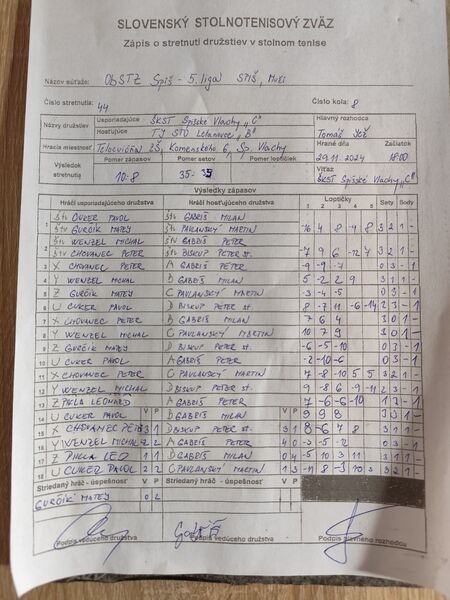 SLOVENSKÝ STOLNOTENISOVÝ ZVÄZ
Zápis o stretnutí družstiev v stolnom tenise
Názov súťaže: ObSTZ Spiš - 5. liga SPIŠ, Muži
Číslo stretnutia: 44 Číslo kola: 8
Názvy družstiev Usporiadajúce ŠKST Spišské Vlachy "C" Hlavný rozhodca
Hosťujúce TJ STO Letanovce "B" Tomáš
Hracia miestnosť Telocvičňa ZŠ, Komenského 6, Sp. Vlachy Hrané dňa 29.11.2024 Začiatok 18:00
Výsledok stretnutia 10:8 Pomer zápasov Pomer setov 35:35 Pomer loptičiek Víťaz ŠKST Spišské Vlachy "C"
Výsledky zápasov
Hráči usporiadajúceho družstva Hráči hosťujúceho družstva Loptičky Sety Body
1 2 3 4 5
1 Štv CUKER PAVOL Štv GABRIŠ MILAN
Štv GURČÍK MATEJ Štv PAVLANSKÝ MARTIN 8 4 -8 8 3 2 1 -
2 Štv WENZEL MICHAL Štv GABRIŠ PETER
Štv CHOVANEC PETER Štv BISKUP PETER st. -7 9 6 -12 7 3 2 1 -
3 X CHOVANEC PETER A GABRIŠ PETER -9 -9 -7 0 3 - 1
4 Y WENZEL MICHAL B GABRIŠ MILAN 5 -2 2 9 3 1 1 -
5 Z GURČÍK MATEJ C PAVLANSKÝ MARTIN -3 -4 -5 0 3 - 1
6 U CUKER PAVOL D BISKUP PETER st. 8 -7 11 -6 -14 2 3 - 1
7 X CHOVANEC PETER B GABRIŠ MILAN 7 6 4 3 0 1 -
8 Y WENZEL MICHAL C PAVLANSKÝ MARTIN 10 7 9 3 0 1 -
9 Z GURČÍK MATEJ D BISKUP PETER st. -6 -5 -10 0 3 - 1
10 U CUKER PAVOL A GABRIŠ PETER -2 -10 -6 0 3 - 1
11 X CHOVANEC PETER C PAVLANSKÝ MARTIN 7 -8 -10 5 5 3 2 1 -
12 Y WENZEL MICHAL D BISKUP PETER st. 9 -8 6 -9 -11 2 3 - 1
13 Z PHLA LEONARD A GABRIŠ PETER 7 -6 -6 -10 1 3 - 1
14 U CUKER PAVOL V P B GABRIŠ MILAN V P 9 9 8 3 0 1 -
15 X CHOVANEC PETER 3 1 D BISKUP PETER st. 3 1 8 -6 7 8 3 1 1 -
16 Y WENZEL MICHAL 2 2 A GABRIŠ PETER 4 0 -3 -5 -2 0 3 - 1
17 Z PHLA LEO 1 1 B GABRIŠ MILAN 0 4 3 1 1 -
18 U CUKER PAVOL 2 2 C PAVLANSKÝ MARTIN 1 3 3 2 1 -
Striedaný hráč - úspešnosť V P Striedaný hráč - úspešnosť V P
GURČÍK MATEJ 0 2
Podpis vedúceho družstva Podpis vedúceho družstva Podpis hlavného rozhodcu